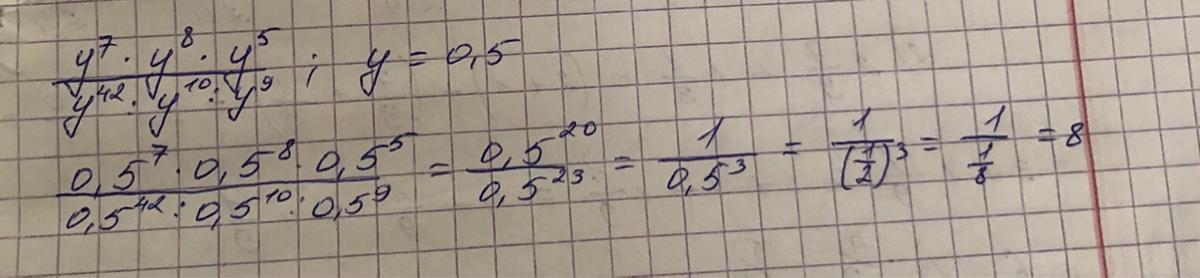 y⁷ · y⁸ · y⁵ / y⁴² : y¹⁰ : y⁹ ; y = 0,5
0,5⁷ · 0,5⁸ · 0,5⁵ / 0,5⁴² : 0,5¹⁰ : 0,5⁹ = 0,5²⁰ / 0,5²³ = 1 / 0,5³ = 1 / (1/2)³ = 1 / 1/8 = 8